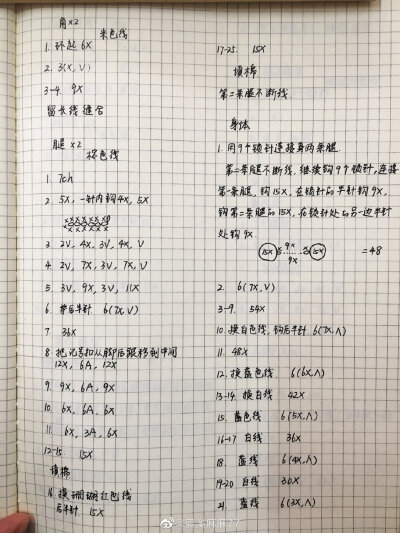 角×2
米色线
1. 环起 6X
2. 3(X, V)
3-4. 9X
留长线缝合
腿 ×2
棕色线
1. 7ch
2. 5X, 一针内钩4X, 5X
3. 2V, 4X, 3V, 4X, V
4. 2V, 7X, 3V, 7X, V
5. 3V, 9X, 3V, 11X
6. 挑后半针 6(7X, V)
7. 36X
8. 把记号扣从脚后跟移到中间
12X, 6A, 12X
9. 9X, 6A, 9X
10. 6X, 6A, 6X
11. 6X, 3A, 6X
12-15. 15X
填棉
16. 换珊瑚红色线
后半针. 15X
17-25. 15X
填棉
第二条腿不断线.
身体
1. 用9个锁针连接身两条腿.
第二条腿不断线, 继续钩9个锁针, 连接
第一条腿, 钩15X, 在锁针的半针钩9X,
钩第二条腿的15X, 在锁针处的另一边半针
处钩9X.
15X 9X 15X =48
9X
2. 6(7X, V)
3-9. 54X
10. 换白色线, 钩后半针. 6(7X, Λ)
11. 48X
12. 换蓝色线. 6(6X, Λ)
13-14. 换白线 42X
15. 蓝色线 6(5X, Λ)
16-17 白线 36X
18. 蓝线 6(4X, Λ)
19-20 白线 30X
21. 蓝线 6(3X, Λ)